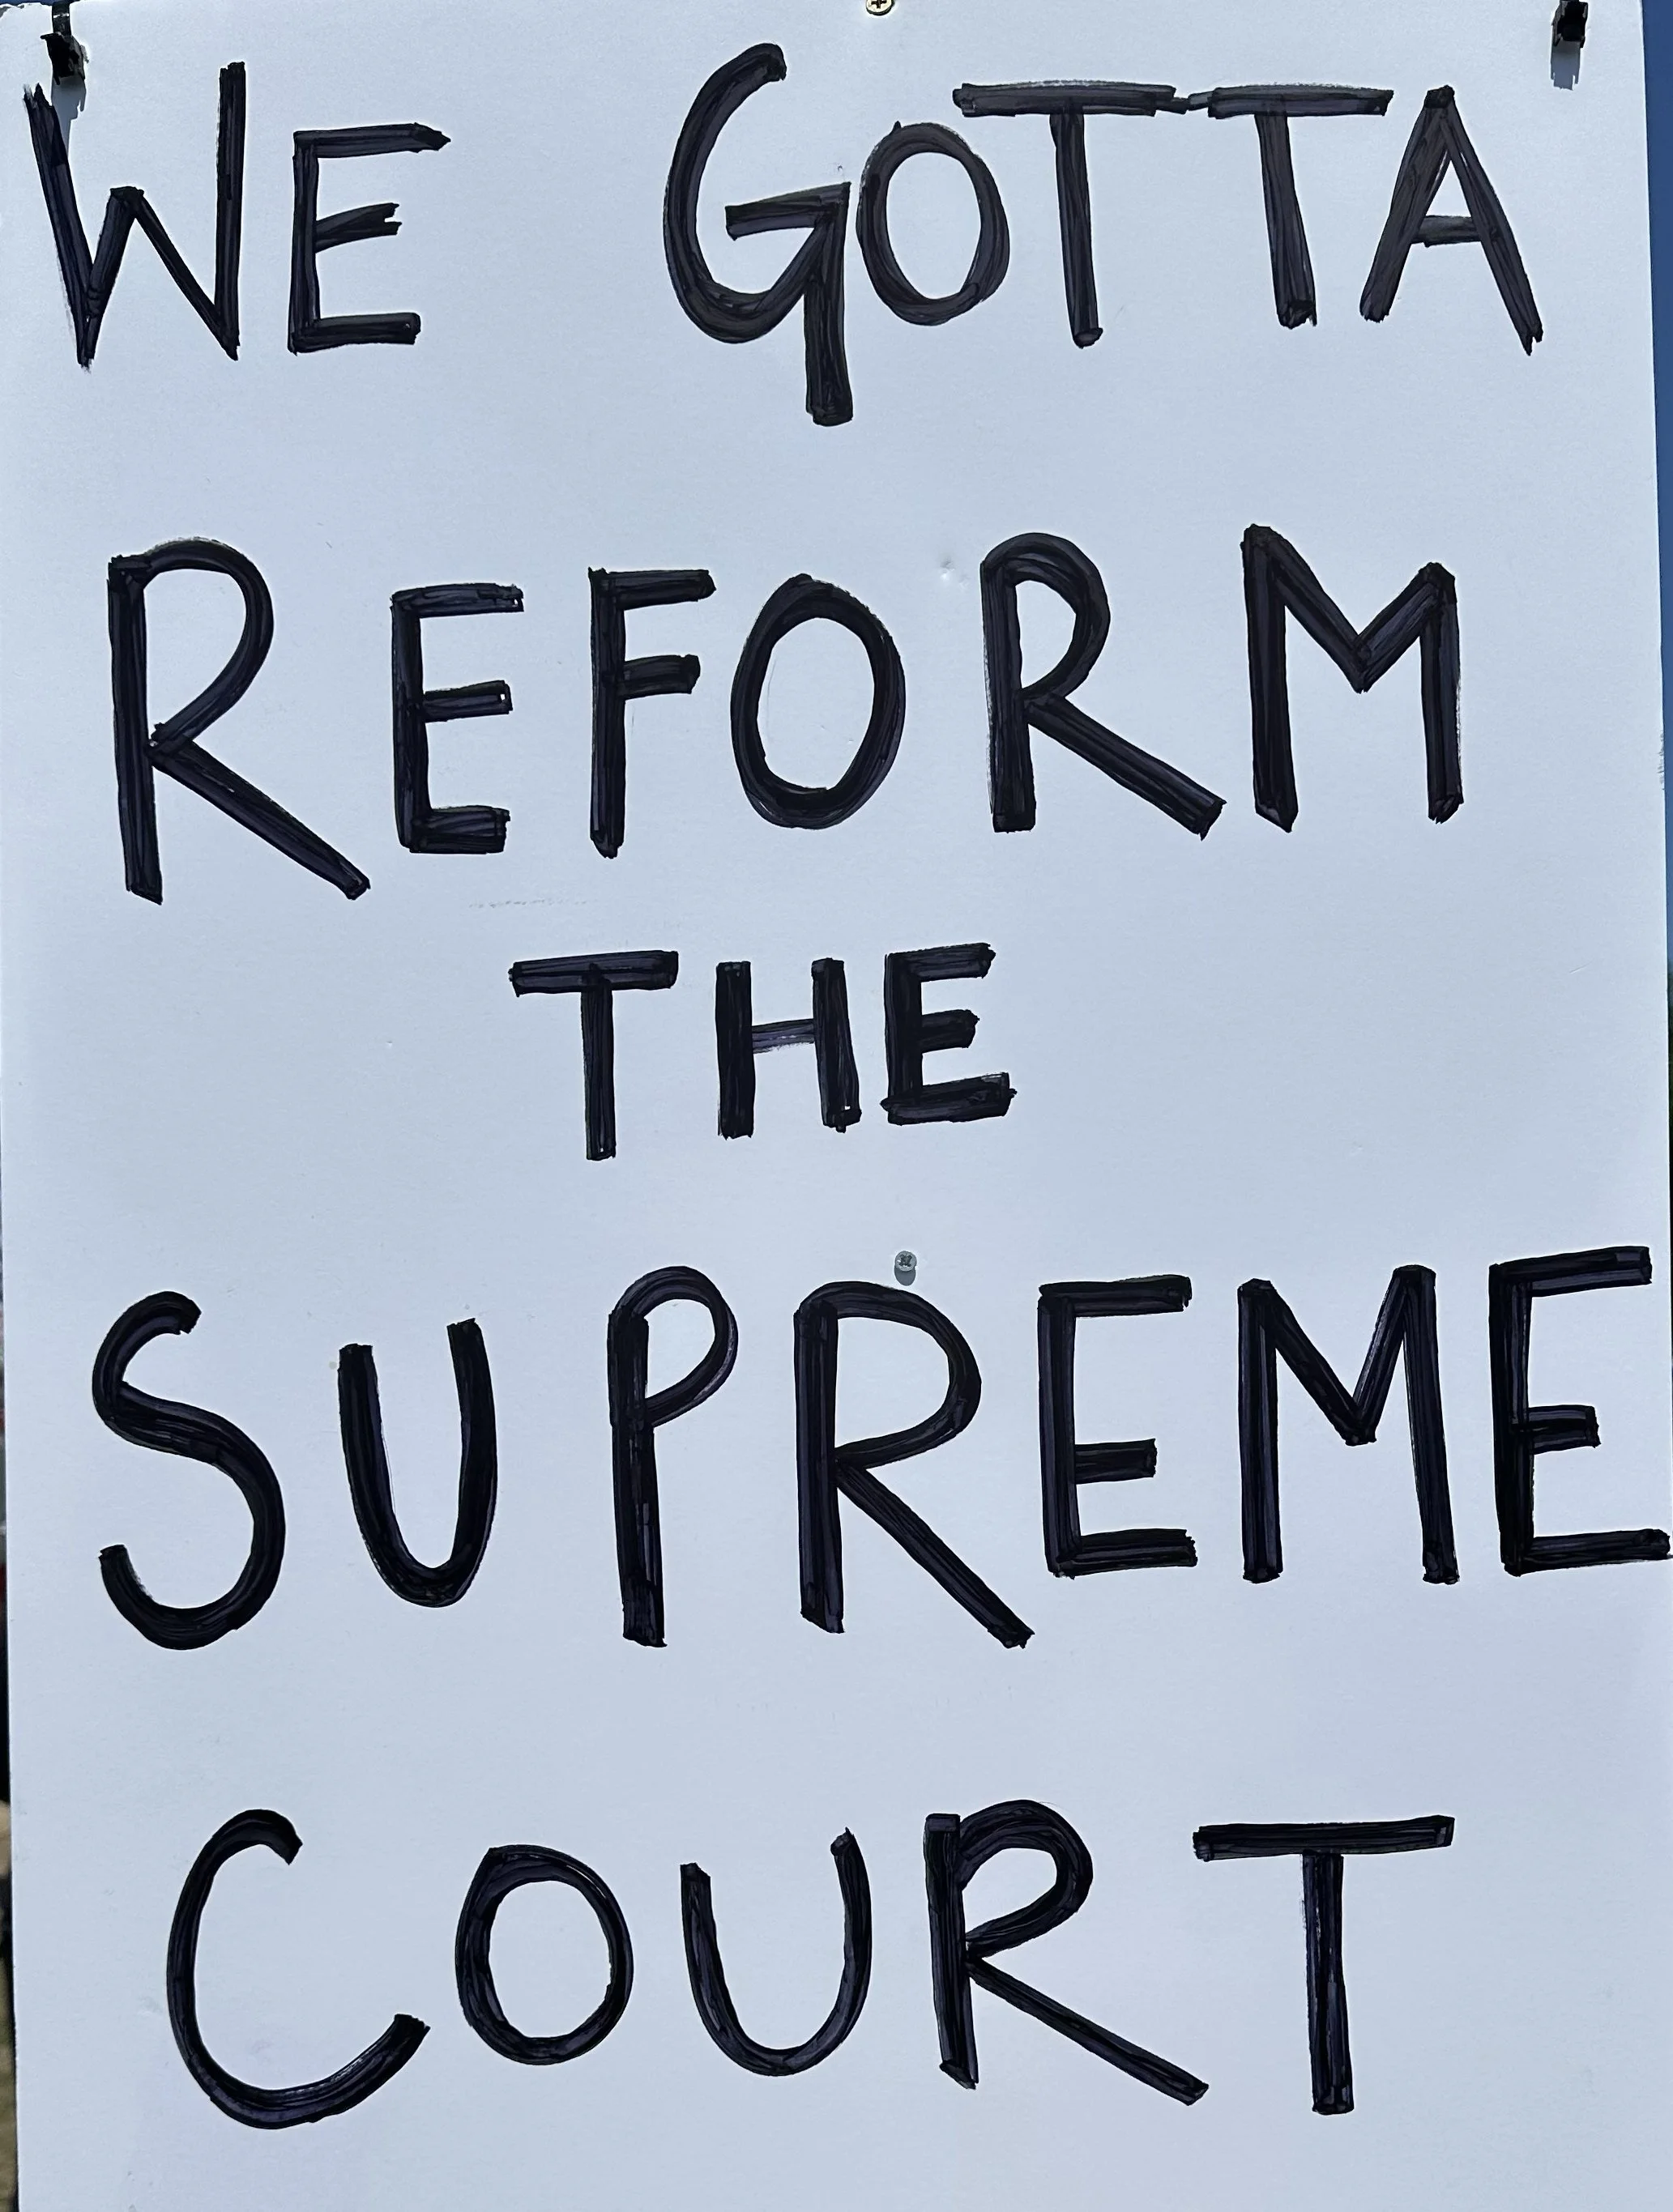 WE GOTTA
REFORM
THE
SUPREME
COURT